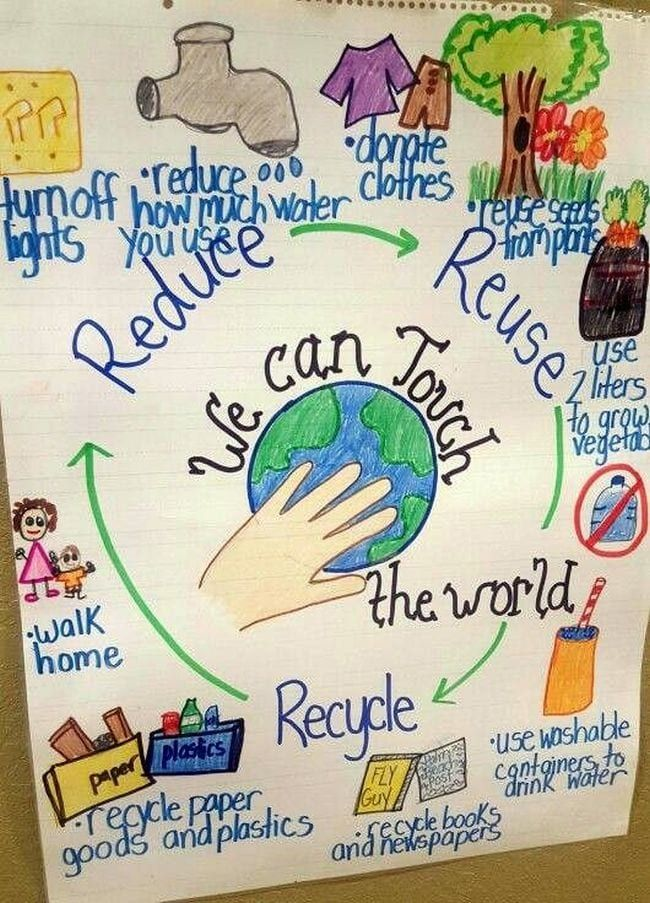 turn off
lights
•reduce
how much water
you use
•donate
clothes
•reuse seeds
from plants
Reduce
Reuse
use
2 liters
to grow
We can Touch
the world
•walk
home
Recycle
paper
plastics
•recycle paper
goods and plastics
FLY
GUY
Palm
Beach
Post
•recycle books
and newspapers
•use washable
containers to
drink water